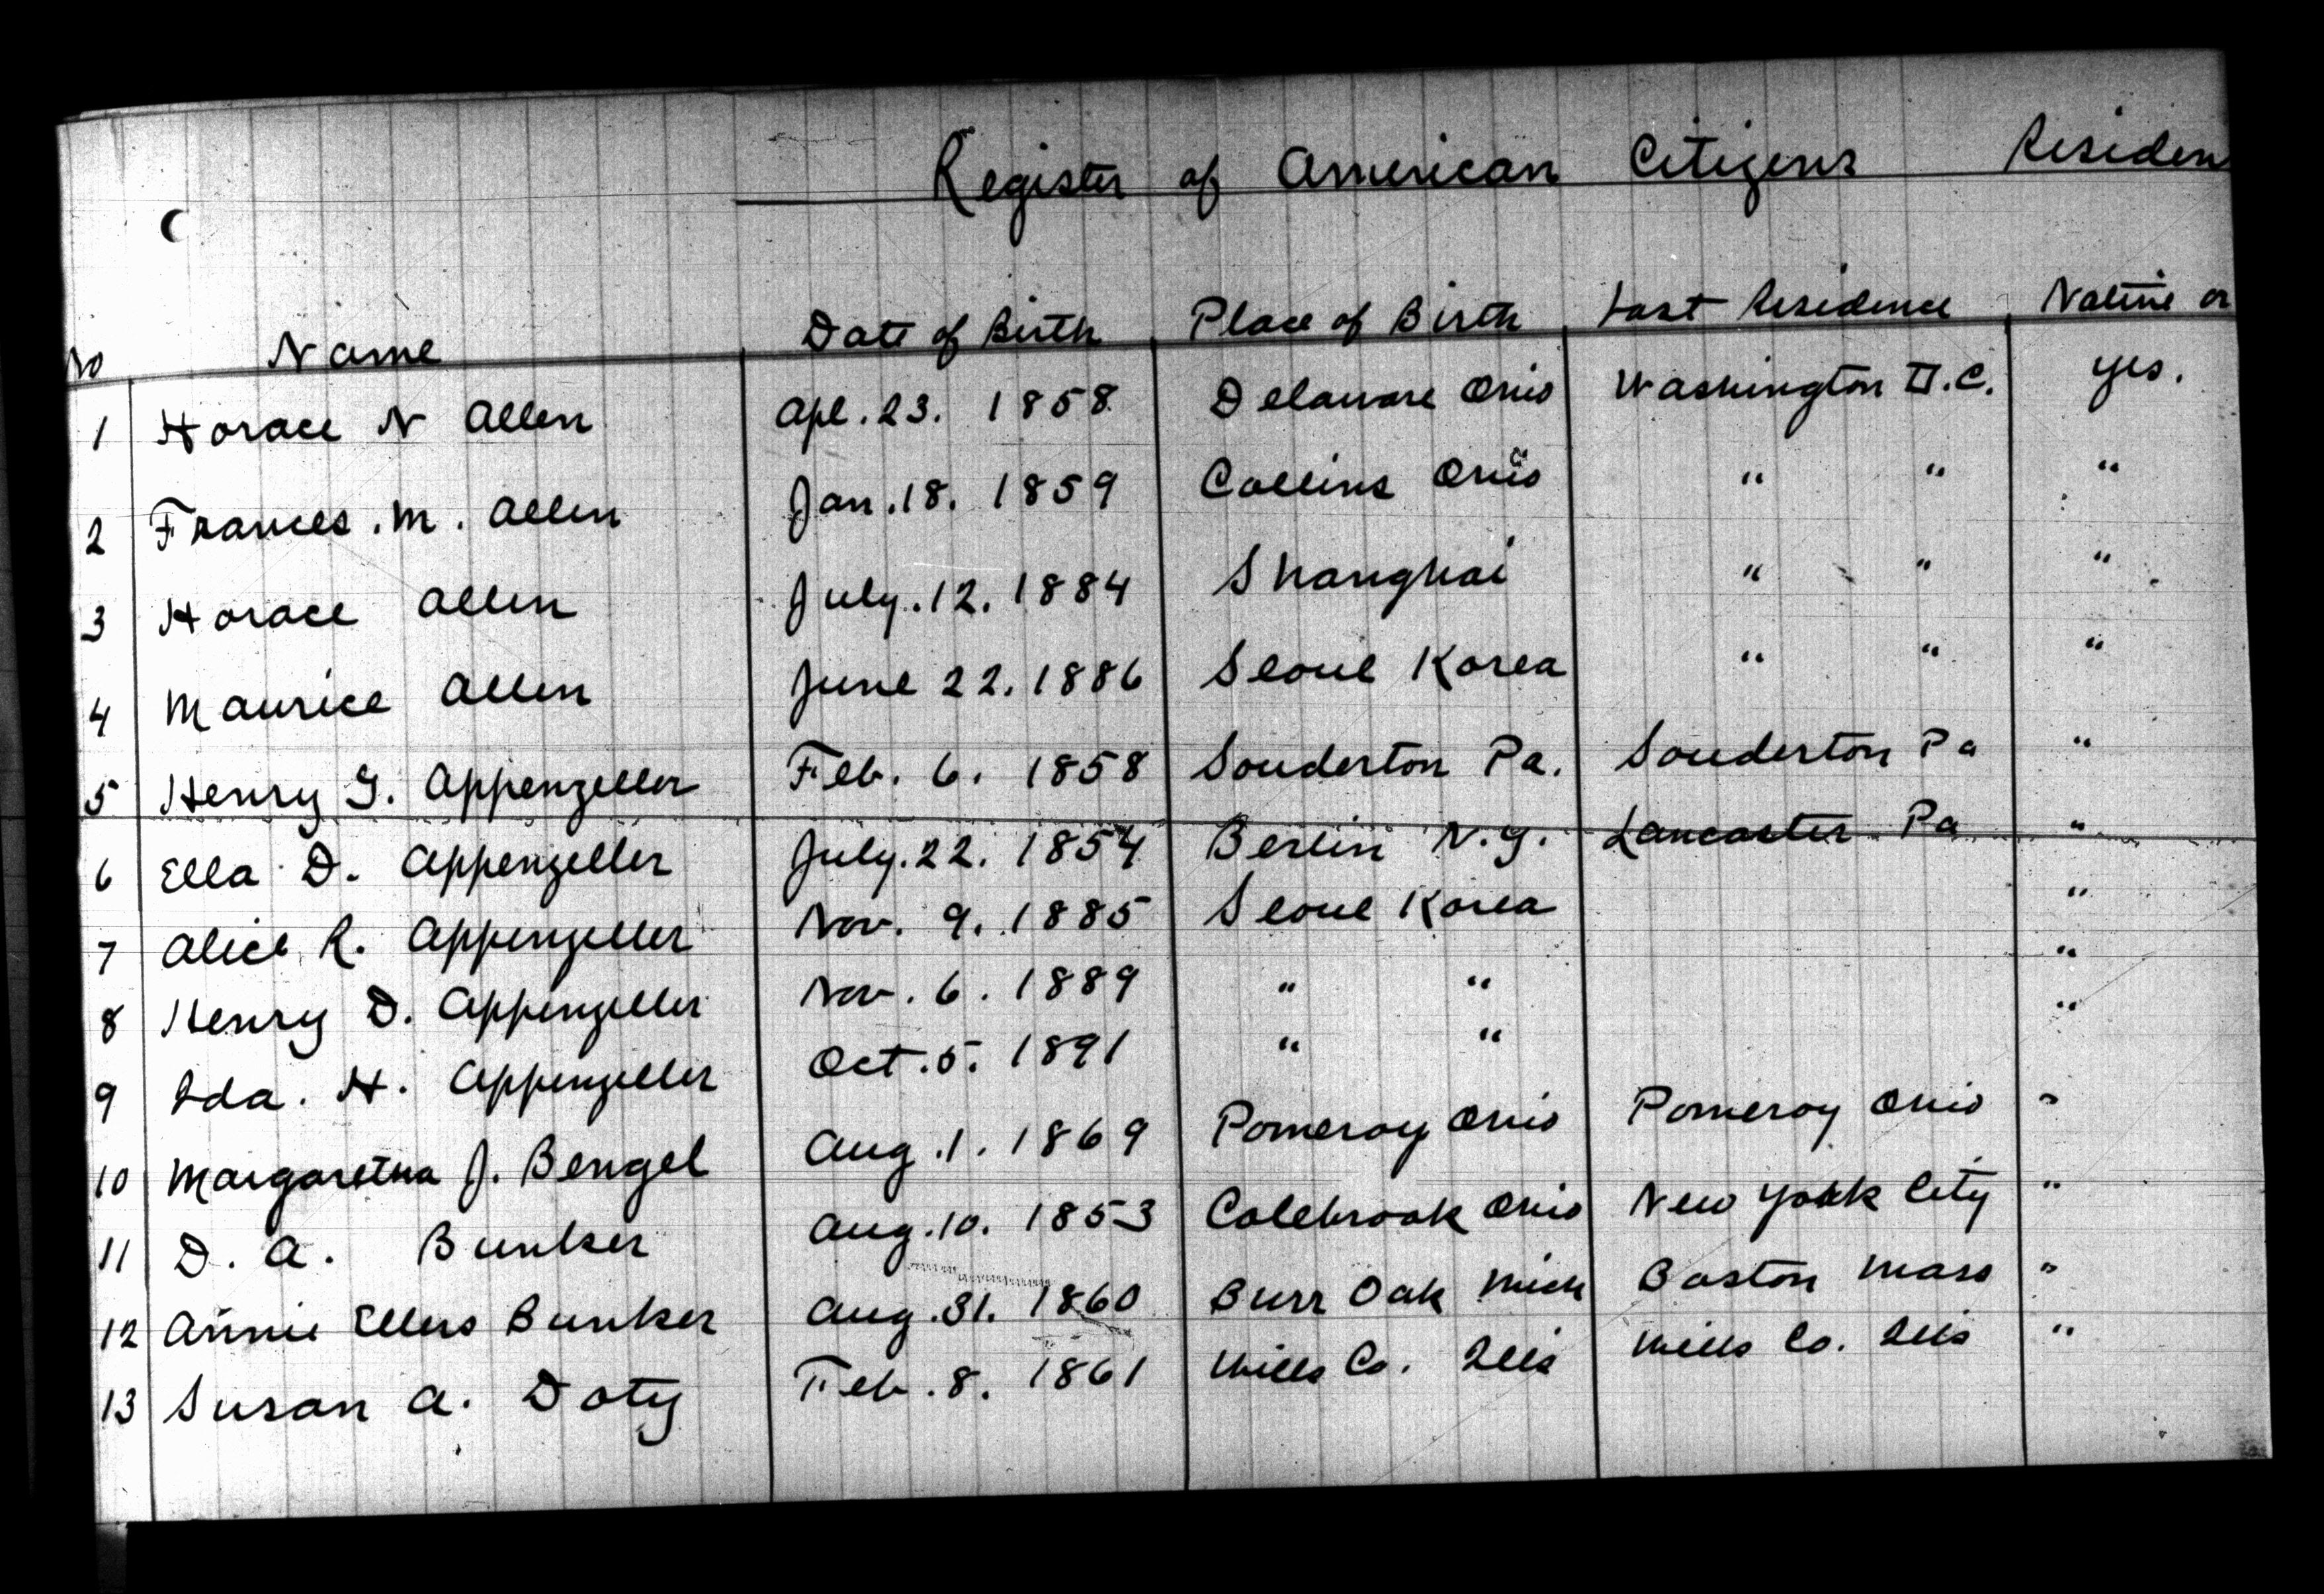 Register of American Citizens Residen
No Name Date of Birth Place of Birth Last Residence Native or
1 Horace N Allen Apl. 23. 1858 Delaware Ohio Washington D.C. yes.
2 Frances. M. Allen Jan. 18. 1859 Collins Ohio " " "
3 Horace Allen July. 12. 1884 Shanghai " " "
4 Maurice Allen June 22. 1886 Seoul Korea " " "
5 Henry G. Appenzeller Feb. 6. 1858 Souderton Pa. Souderton Pa "
6 Ella D. Appenzeller July. 22. 1854 Berlin N.Y. Lancaster Pa "
7 Alice R. Appenzeller Nov. 9. 1885 Seoul Korea "
8 Henry D. Appenzeller Nov. 6. 1889 " " "
9 Ida. H. Appenzeller Oct. 5. 1891 " " "
10 Margaretha J. Bengel Aug. 1. 1869 Pomeroy Ohio Pomeroy Ohio "
11 D. A. Bunker Aug. 10. 1853 Colebrook Ohio New York City "
12 Annie Ellers Bunker Aug. 31. 1860 Burr Oak Mich Boston Mass "
13 Susan A. Doty Feb. 8. 1861 Wills Co. Ills Wills Co. Ills "